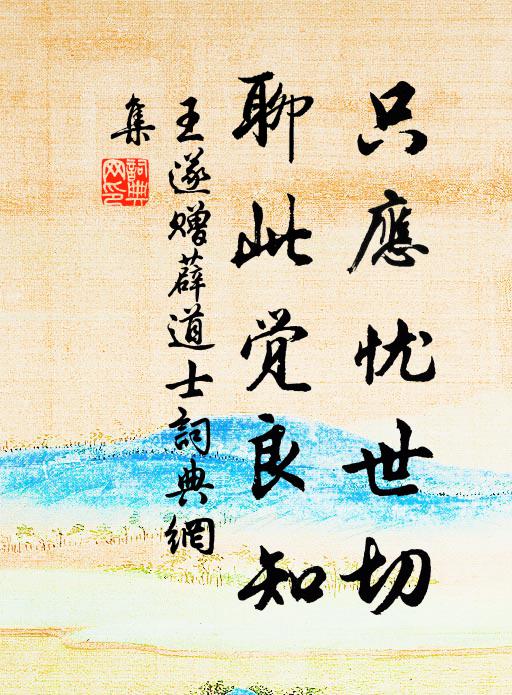 只應忧世切
聊此觉良知
王遂赠薜道士詞典網
集
詞典
网印